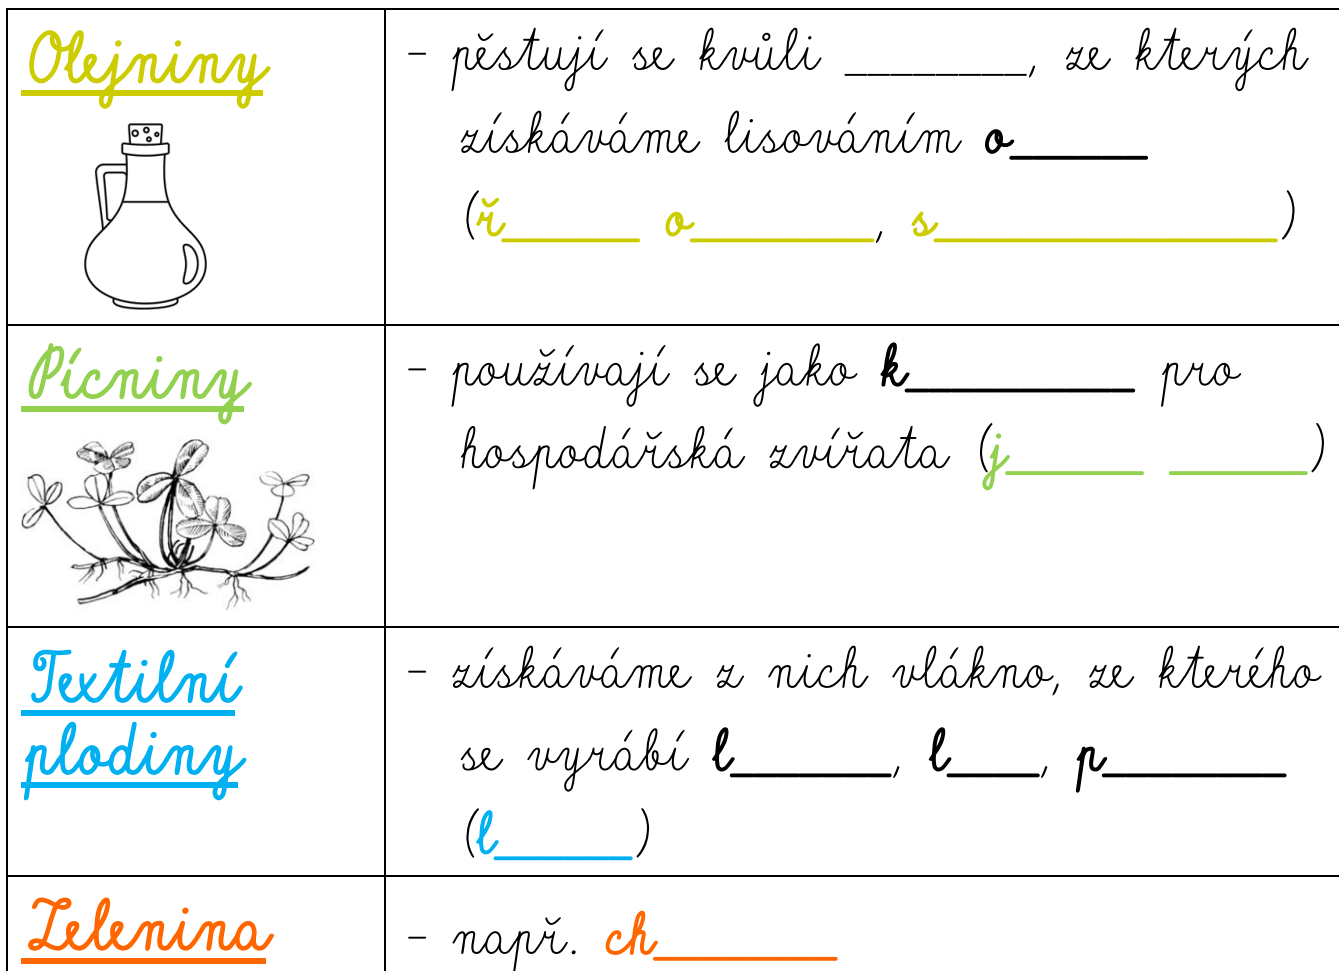 Olejniny
- pěstují se kvůli ________, ze kterých
získáváme lisováním o______
(ř______ o________, s_______________)
Pícniny
- používají se jako k__________ pro
hospodářská zvířata (j______ ______)
Textilní
plodiny
- získáváme z nich vlákno, ze kterého
se vyrábí l_______, l____, p________
(l______)
Zelenina
- např. ch________